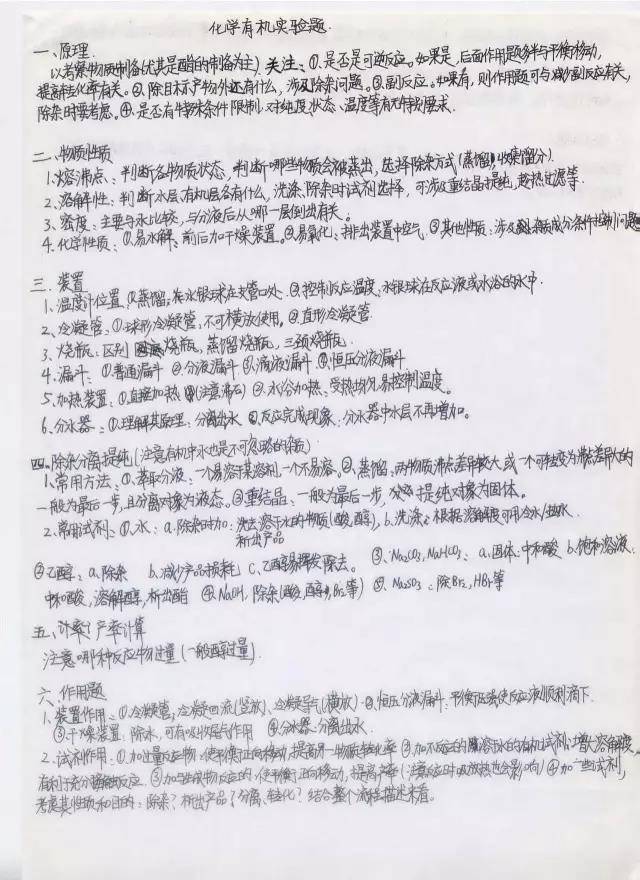 化学有机实验题.
一、原理.
以考察物质制备(尤其是酯的制备为主). 关注:①.是否是可逆反应。如果是,后面作用题多半与平衡移动,
提高转化率有关。②.除目标产物外还有什么,涉及除杂问题。③.副反应。如果有,则作用题可与减少副反应有关,
除杂时要考虑。④.是否有特殊条件限制.对纯度、状态、温度等有无特别要求.
二、物质性质
1.熔沸点:判断各物质状态,判断哪些物质会被蒸出,选择除杂方式(蒸馏,收集馏分).
2、溶解性:判断水层有机层各有什么,洗涤、除杂时试剂选择,可涉及重结晶提纯,趁热过滤等.
3、密度:主要与水比较,与分液后从哪一层倒出有关。
4.化学性质:①.易水解:前后加干燥装置。②易氧化:排出装置中空气.③其他性质:涉及成分条件控制问题
三.装置
1、温度计位置:①.蒸馏:水银球在支管口处.②.控制反应温度:水银球在反应液或水浴的水中.
2、冷凝管:①.球形冷凝管:不可横放使用。②.直形冷凝管
3、烧瓶:区别 烧瓶,蒸馏烧瓶,三颈烧瓶.
4.漏斗:①普通漏斗 ②分液漏斗 ③滴液漏斗 ④恒压分液漏斗.
5.加热装置:①.直接加热(注意沸石) ②.水浴加热:受热均匀易控制温度。
6、分水器:①.理解其原理:分离出水 ②.反应完成现象:分水器中水层不再增加。
四、除杂分离提纯(注意有机中水也是不可忽略的杂质)
1.常用方法:①.萃取分液:一个易溶于某溶剂,一个不易容。②.蒸馏:两物质沸点差异较大或一个可转变为沸点差异大的
一般为最后一步,且分离对象为液态。③重结晶:一般为最后一步,提纯对象为固体。
2、常用试剂:①.水:a.除杂时加:洗去溶于水的物质(酸,醇), b.洗涤:根据溶解度可用冷水/热水.
析出产品
②乙醇:a.除杂 b.减少产品损耗 c.乙醇易挥发除去。 ③、Na₂CO₃,NaHCO₃: a.固体:中和酸 b.饱和溶液:
中和酸,溶解醇,析出酯 ④.NaOH,除杂(酸,醇,Br₂等) ⑤.NaSO₃:除Br₂,HBr等
五、计算:产率计算
注意哪种反应物过量(一般醇过量).
六、作用题
1.装置作用:①.冷凝管:冷凝回流(竖放)、冷凝导气(横放).②.恒压分液漏斗:平衡压强使反应液顺利滴下.
③.干燥装置:除水,可有吸收尾气作用 ④.分水器:分离出水.
2.试剂作用:①.加过量反应物:使平衡正向移动,提高另一物质转化率 ②.加不反应的溶于水的有机试剂:增大溶解度,
有利于充分反应. ③.加与生成物反应的:使平衡正向移动,提高产率(注意反应时吸放热也会影响) ④加一些试剂,
考虑其性质和目的:除杂?析出产品?分离、转化?结合整个流程描述来看。